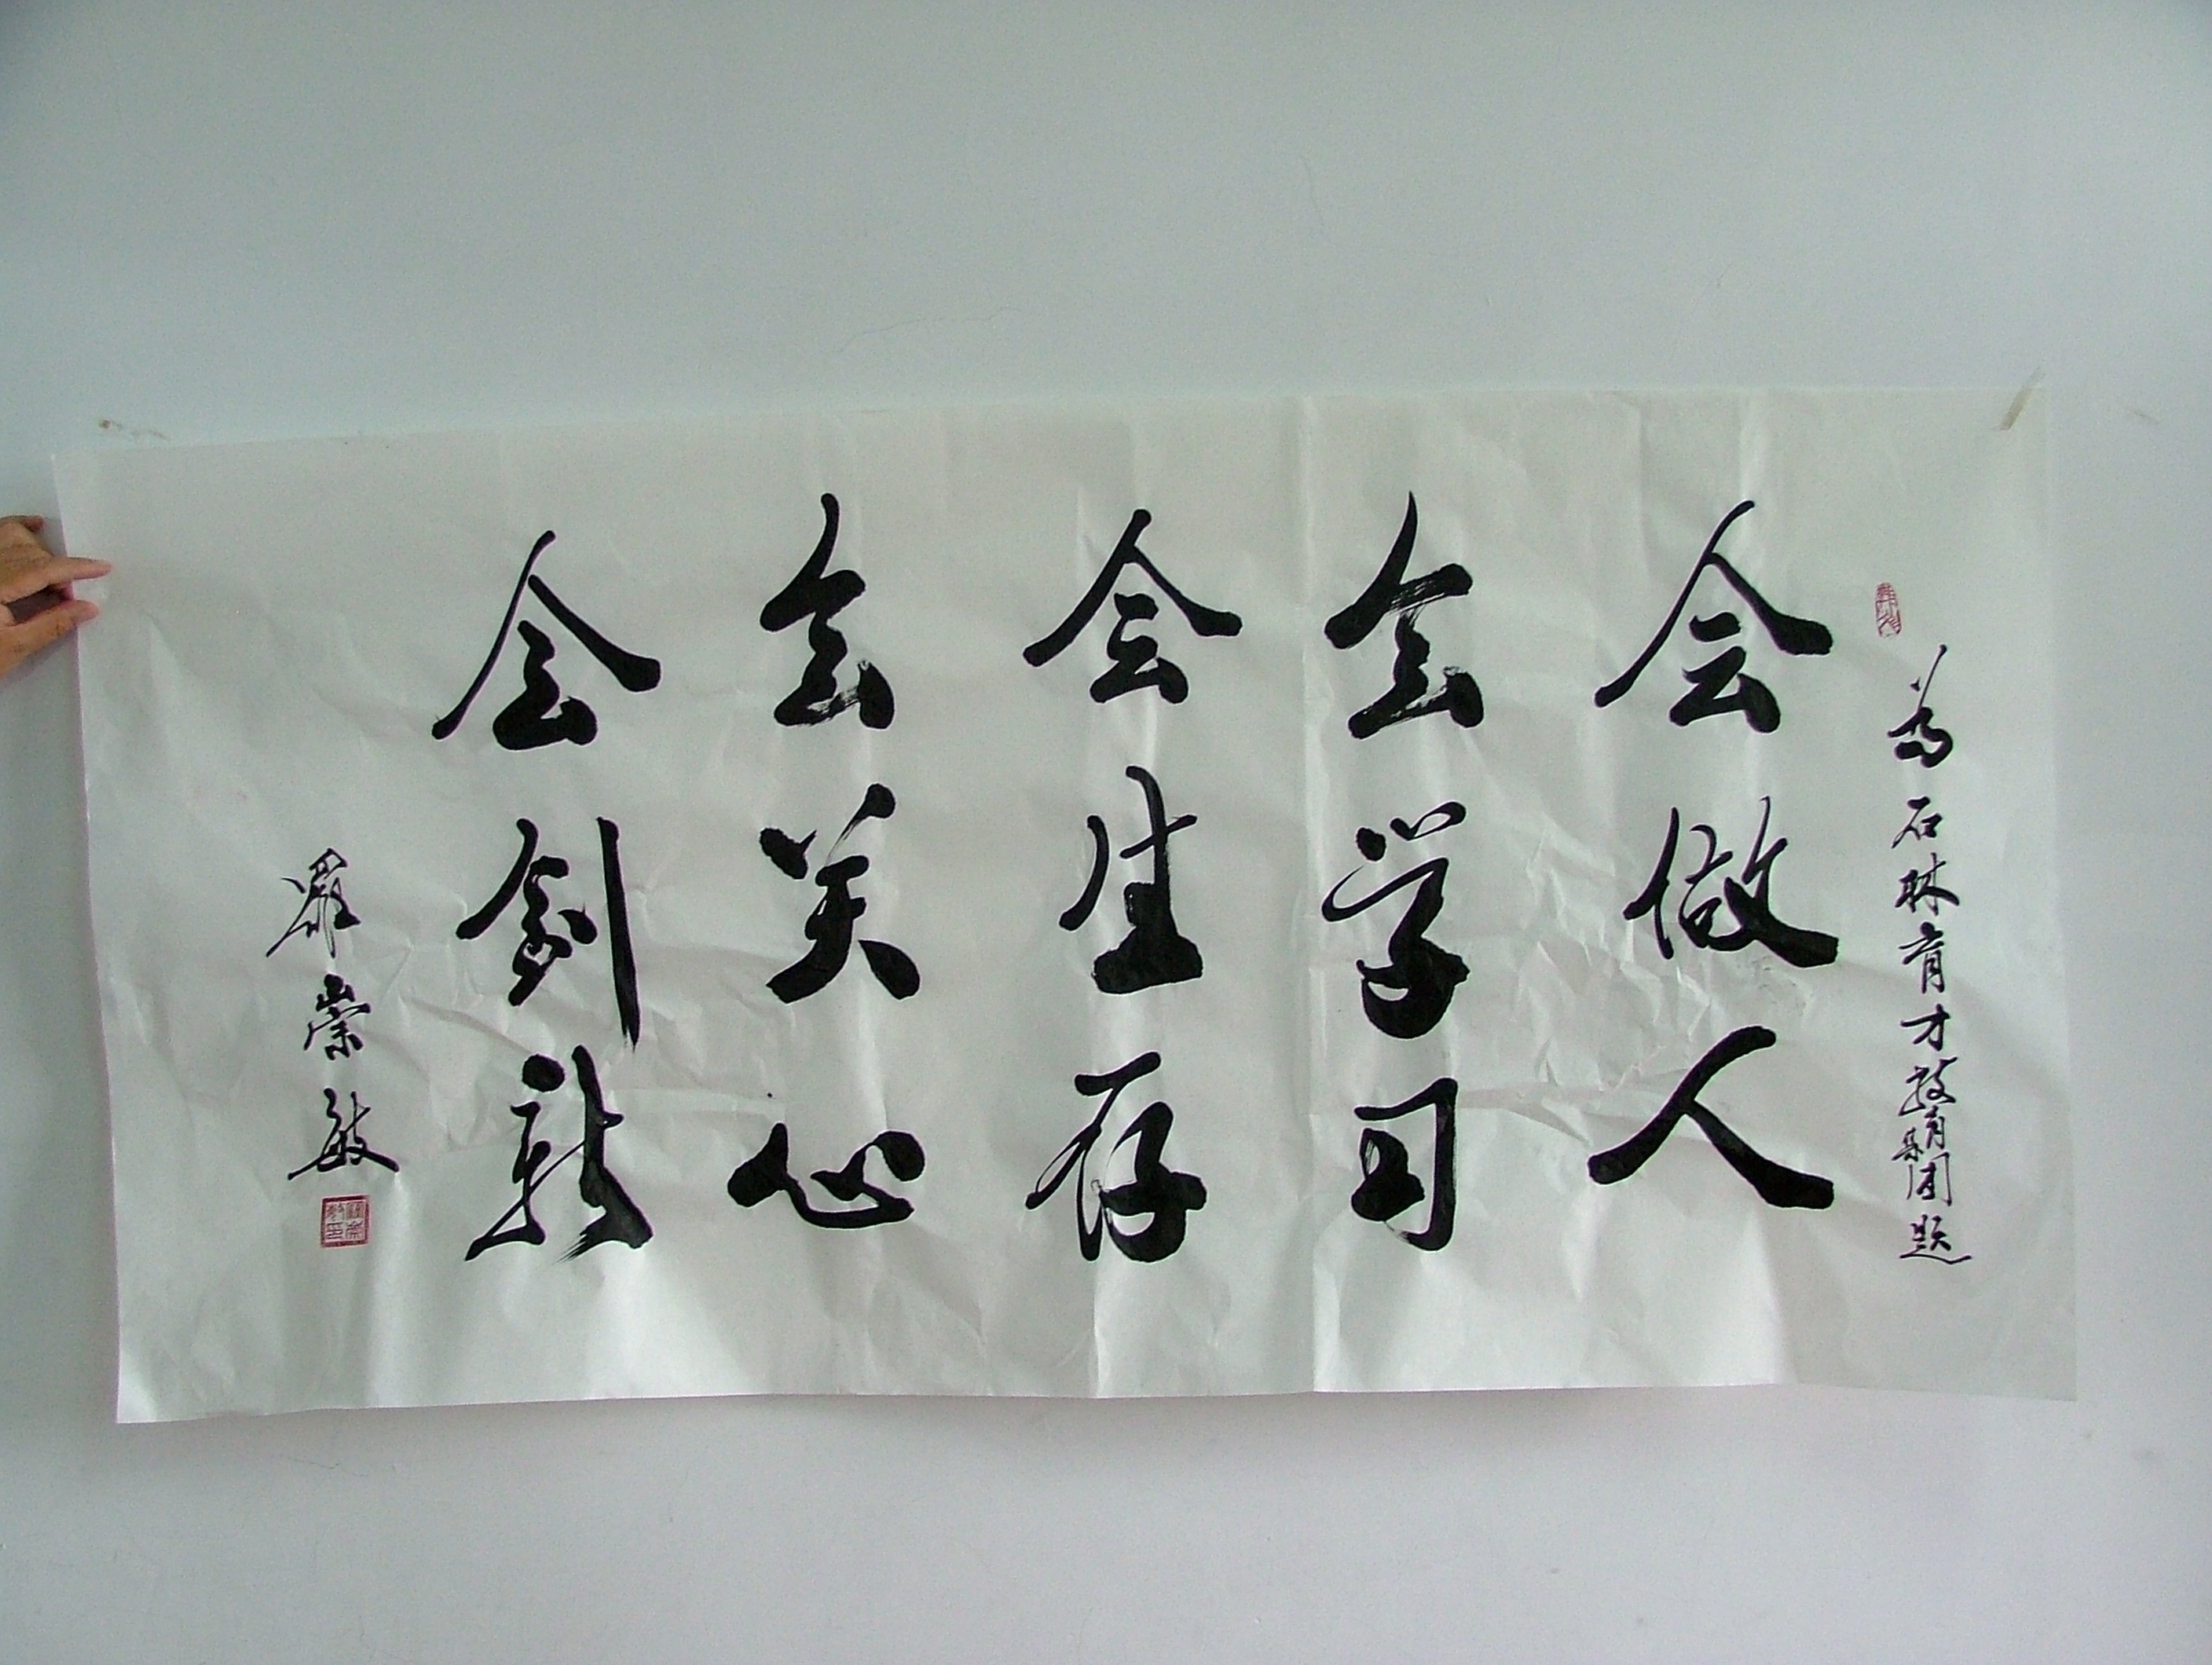 為石林育才教育集团题
会做人
会学习
会生存
会关心
会創新
嚴崇敏